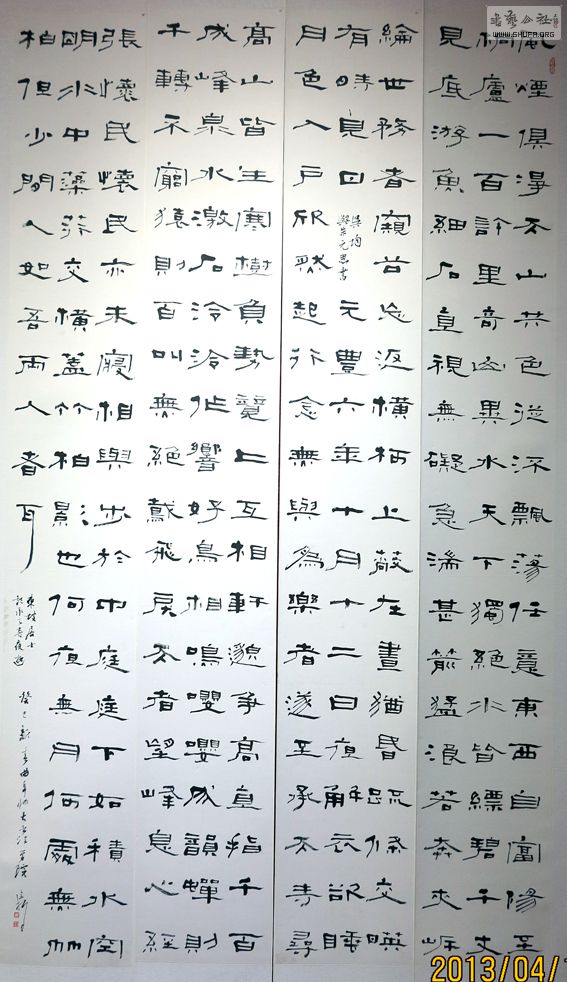 風煙俱淨天山共色從流飄蕩任意東西自富陽至
桐廬一百許里奇山異水天下獨絕水皆縹碧千丈
見底游魚細石直視無礙急湍甚箭猛浪若奔夾岸
綸世務者窺谷忘返橫柯上蔽在晝猶昏疏條交映
有時見日
吳均
與朱元思書
元豐六年十月十二日夜解衣欲睡
月色入戶欣然起行念無與為樂者遂至承天寺尋
高山皆生寒樹負勢競上互相軒邈爭高直指千百
成峰泉水激石泠泠作響好鳥相鳴嚶嚶成韻蟬則
千轉不窮猿則百叫無絕鳶飛戾天者望峰息心經
張懷民懷民亦未寢相與步於中庭庭下如積水空
明水中藻荇交橫蓋竹柏影也何夜無月何處無竹
柏但少閒人如吾兩人者耳
東坡居士
記承天寺夜遊
癸巳新春曲阜師大書法
WWW.SHUFA.ORG
2013/04/